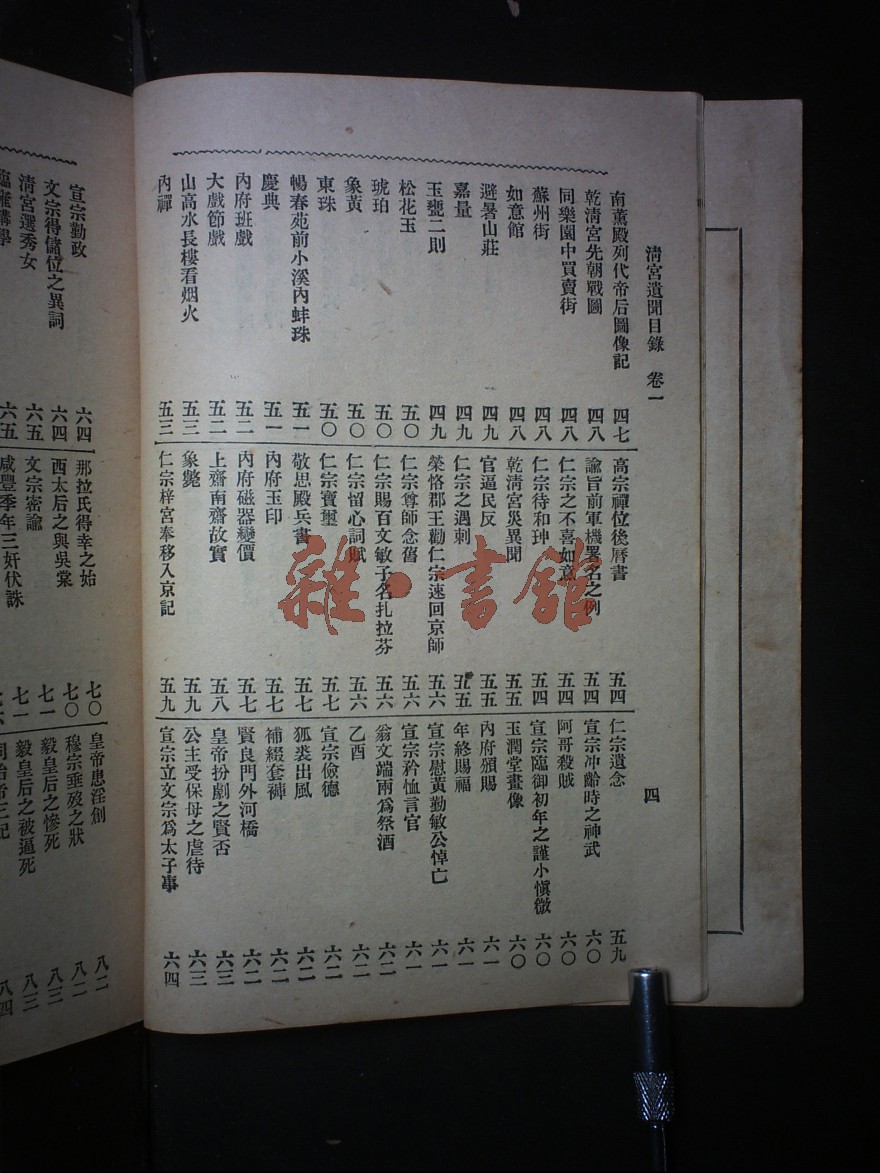 清宮遺聞目錄 卷一
四
南薰殿列代帝后圖像記 四七
乾清宮先朝戰圖 四八
同樂園中買賣街 四八
蘇州街 四八
如意館 四八
避暑山莊 四九
嘉量 四九
玉甕二則 四九
松花玉 五〇
琥珀 五〇
象黃 五〇
東珠 五〇
暢春苑前小溪內蚌珠 五一
慶典 五一
內府班戲 五二
大戲節戲 五二
山高水長樓看烟火 五三
內禪 五三
高宗禪位後曆書 五四
諭旨前軍機署名之例 五四
仁宗之不喜如意 五四
仁宗待和珅 五四
乾清宮災異聞 五五
官逼民反 五五
仁宗之遇刺 五五
榮恪郡王勸仁宗速回京師 五六
仁宗尊師念舊 五六
仁宗賜百文敏子名扎拉芬 五六
仁宗留心詞賦 五六
仁宗寶璽 五七
敬思殿兵書 五七
內府玉印 五七
內府磁器變價 五七
上齋南齋故實 五八
象斃 五九
仁宗梓宮奉移入京記 五九
仁宗遺念 五九
宣宗冲齡時之神武 六〇
阿哥殺賊 六〇
宣宗臨御初年之謹小愼微 六〇
玉潤堂畫像 六〇
內府頒賜 六一
年終賜福 六一
宣宗慰黃勤敏公悼亡 六一
宣宗矜恤言官 六一
翁文端兩爲祭酒 六二
乙酉 六二
宣宗儉德 六二
狐裘出風 六二
補綴套褲 六二
賢良門外河橋 六二
皇帝扮劇之賢否 六三
公主受保母之虐待 六三
宣宗立文宗爲太子事 六四
宣宗勤政 六四
文宗得儲位之異詞 六四
清宮選秀女 六五
臨雍講學 六五
那拉氏得幸之始 七〇
西太后之與吳棠 七〇
文宗密諭 七一
咸豐季年三奸伏誅 七一
皇帝患淫創 八二
穆宗垂歿之狀 八二
毅皇后之慘死 八三
毅皇后之被逼死 八三
八四
雜·書館